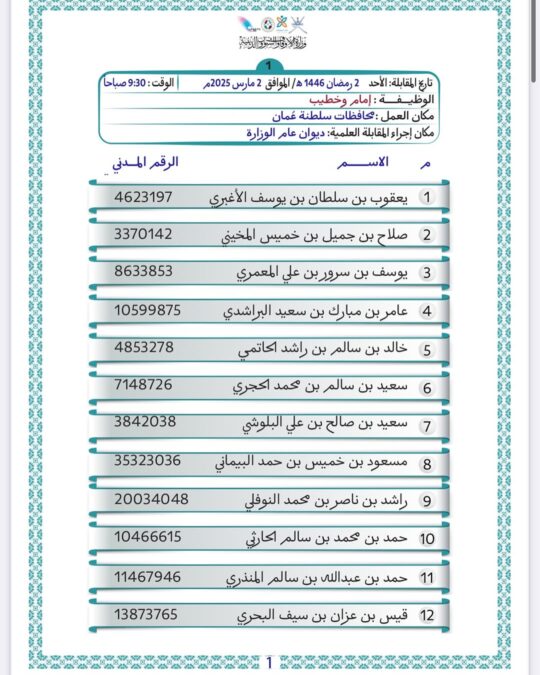 وزارة الأوقاف والشؤون الدينية
1
تاريخ المقابلة: الأحد 2 رمضان 1446 ه/ الموافق 2 مارس 2025م الوقت : 9:30 صباحا
الوظيفـــة : إمام وخطيب
مكان العمل : محافظات سلطنة عُمان
مكان إجراء المقابلة العلمية: ديوان عام الوزارة
م الاســـم الرقم المـدني
1 يعقوب بن سلطان بن يوسف الأغبري 4623197
2 صلاح بن جميل بن خميس المخيني 3370142
3 يوسف بن سرور بن علي المعمري 8633853
4 عامر بن مبارك بن سعيد البراشدي 10599875
5 خالد بن سالم بن راشد الحاتمي 4853278
6 سعيد بن سالم بن محمد الحجري 7148726
7 سعيد بن صالح بن علي البلوشي 3842038
8 مسعود بن خميس بن حمد البيماني 35323036
9 راشد بن ناصر بن محمد النوفلي 20034048
10 حمد بن محمد بن سالم الحارثي 10466615
11 حمد بن عبدالله بن سالم المنذري 11467946
12 قيس بن عزان بن سيف البحري 13873765
1